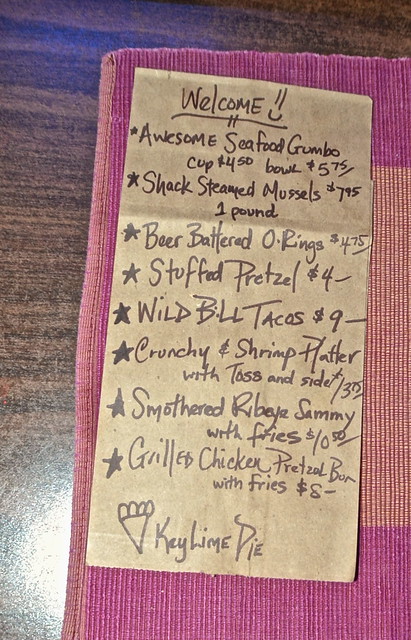 Welcome
*Awesome Seafood Gumbo
cup $4.50 bowl $5.75/
*Shack Steamed Mussels $7.95
1 pound
★ Beer Battered O-Rings $4.75/
★ Stuffed Pretzel $4—
★ Wild Bill Tacos $9—
★ Crunchy & Shrimp Platter
with Toss and side
★ Smothered Ribeye Sammy
with fries $10.50/
★ Grilled Chicken Pretzel Bun
with fries $8—
Key Lime Pie